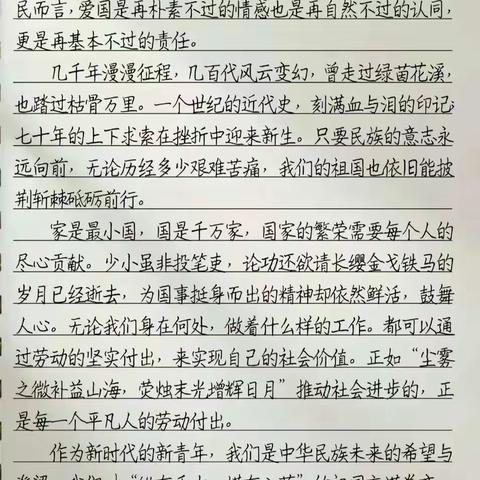 民而言，爱国是再朴素不过的情感也是再自然不过的认同，
更是再基本不过的责任。
几千年漫漫征程，几百代风云变幻，曾走过绿茵花溪，
也踏过枯骨万里。一个世纪的近代史，刻满血与泪的印记；
七十年的上下求索在挫折中迎来新生。只要民族的意志永
远向前，无论历经多少艰难苦痛，我们的祖国也依旧能披
荆斩棘砥砺前行。
家是最小国，国是千万家，国家的繁荣需要每个人的
尽心贡献。少小虽非投笔吏，论功还欲请长缨金戈铁马的
岁月已经逝去，为国事挺身而出的精神却依然鲜活，鼓舞
人心。无论我们身在何处，做着什么样的工作。都可以通
过劳动的坚实付出，来实现自己的社会价值。正如“尘雾
之微补益山海，荧烛末光增辉日月”推动社会进步的，正
是每一个平凡人的劳动付出。
作为新时代的新青年，我们是中华民族未来的希望与